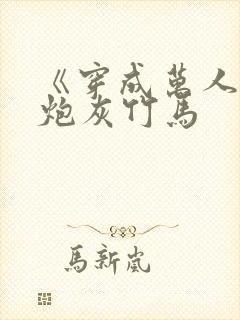 《穿成萬人
炮灰竹馬
馬新嵐